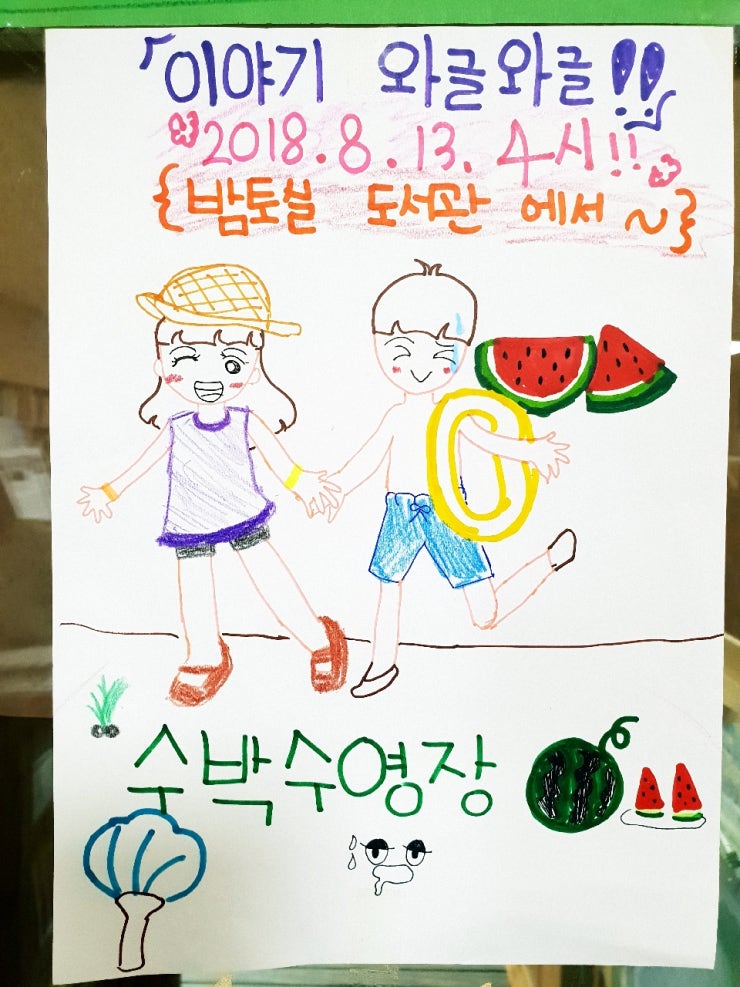 「이야기 와글와글!!」
2018.8.13. 4시!!
{밤토실 도서관 에서~}
수박수영장